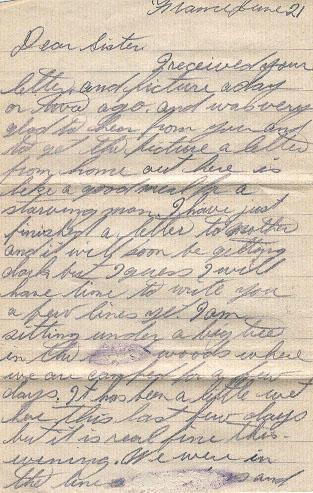 France June 21
Dear Sister
I received your
letter and picture a day
or two ago. and was very
glad to hear from you and
to get the picture a letter
from home out here is
like a good meal for a
starving man. I have just
finished a letter to mother
and it will soon be getting
dark but I guess I will
have time to write you
a few lines yet I am
sitting under a big tree
in the woods where
we are camped for a few
days. It has been a little wet
here this last few days
but it is real fine this
evening. We were in
the line and